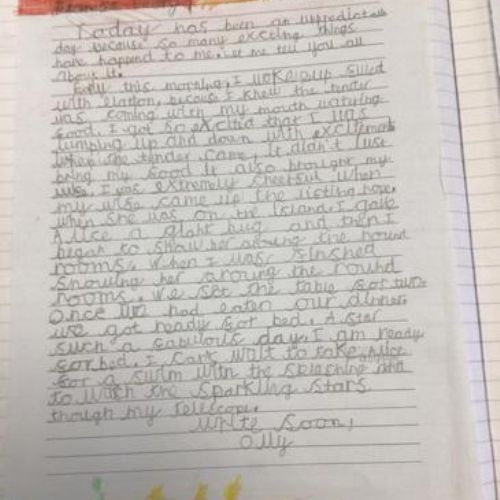 Today has been an unpredictable
day because so many exceting things
have happend to me. Let me tell you all
about it.
Early this morning, I woke up filled
with elation, because I knew the tender
was coming with my mouth watering
food. I got so excited that I was
jumping up and down with excitement
when the tender came, it didn't just
bring my food it also brought my
wife. I was extremely cheerful when
my wife came up the lifting rope.
when she was on the Island, I gave
Alice a giant hug and then I
began to show her around the round
rooms. When I was finished
showing her around the round
rooms. We set the table for two.
Once we had eaten our dinner,
we got ready for bed. After
such a fabulous day, I am ready
for bed. I cant wait to take Alice
for a swim with the splashing and
to watch the sparkling stars
though my telescope.
Write soon,
Olly